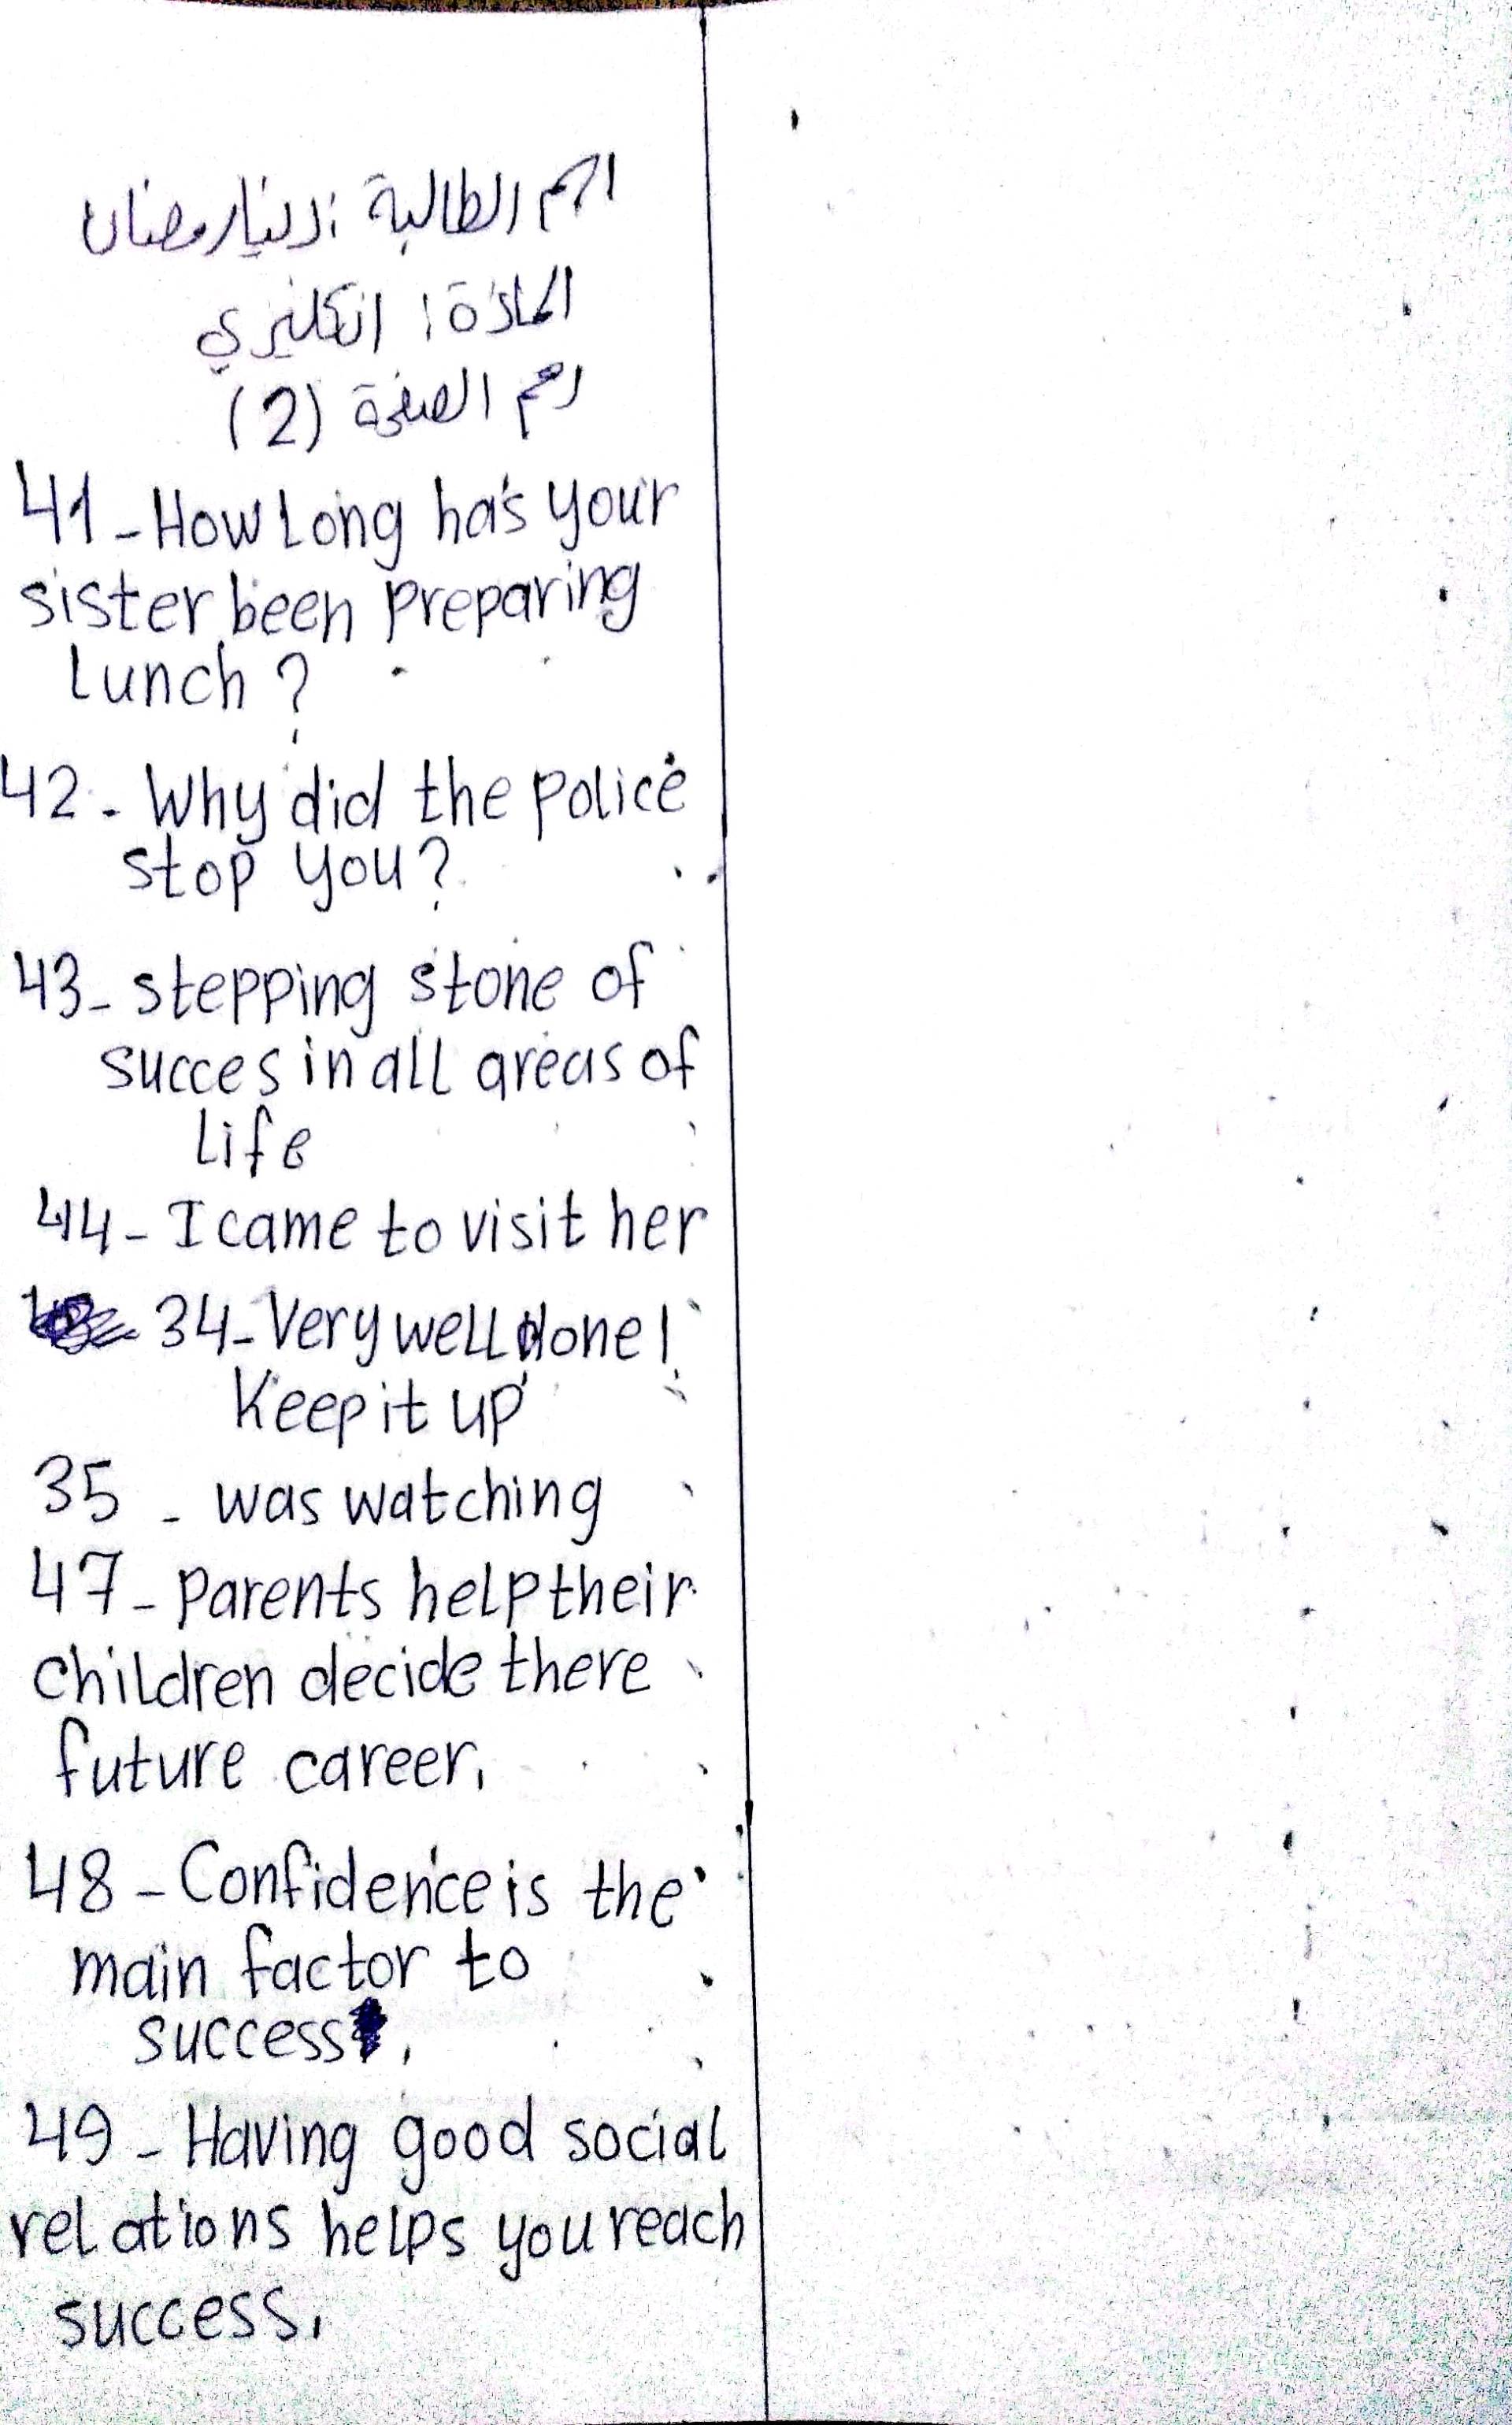 اسم الطالبة: دينا رمضان
المادة: انكليزي
رقم الصفحة (2)
41 - How Long has your
sister been preparing
Lunch?
42 - Why did the police
stop you?
43 - stepping stone of
succes in all areas of
Life
44 - I came to visit her
34 - Very well done!
Keep it up
35 - was watching
47 - parents help their
children decide there
future career.
48 - Confidence is the
main factor to
success.
49 - Having good social
relations helps you reach
success.